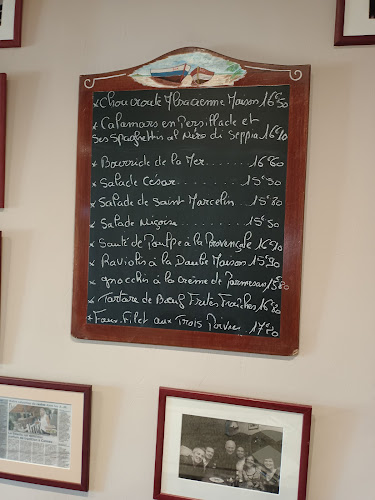 * Choucroute Alsacienne Maison 16€50
* Calamars en Persillade et
ses Spaghettis al Nero di Seppia 16€10
* Bourride de la Mer....... 16€60
* Salade César........ 15€50
* Salade de Saint Marcelin... 15€80
* Salade Niçoise........ 15€50
* Sauté de Poulpe à la Provençale 16€10
* Raviolis à la Daube Maison 15€90
* gnocchis à la Crème de Parmesan 15€80
* Tartare de Bœuf Frites Fraîches 16€80
* Faux-Filet aux Trois Poivres 17€20